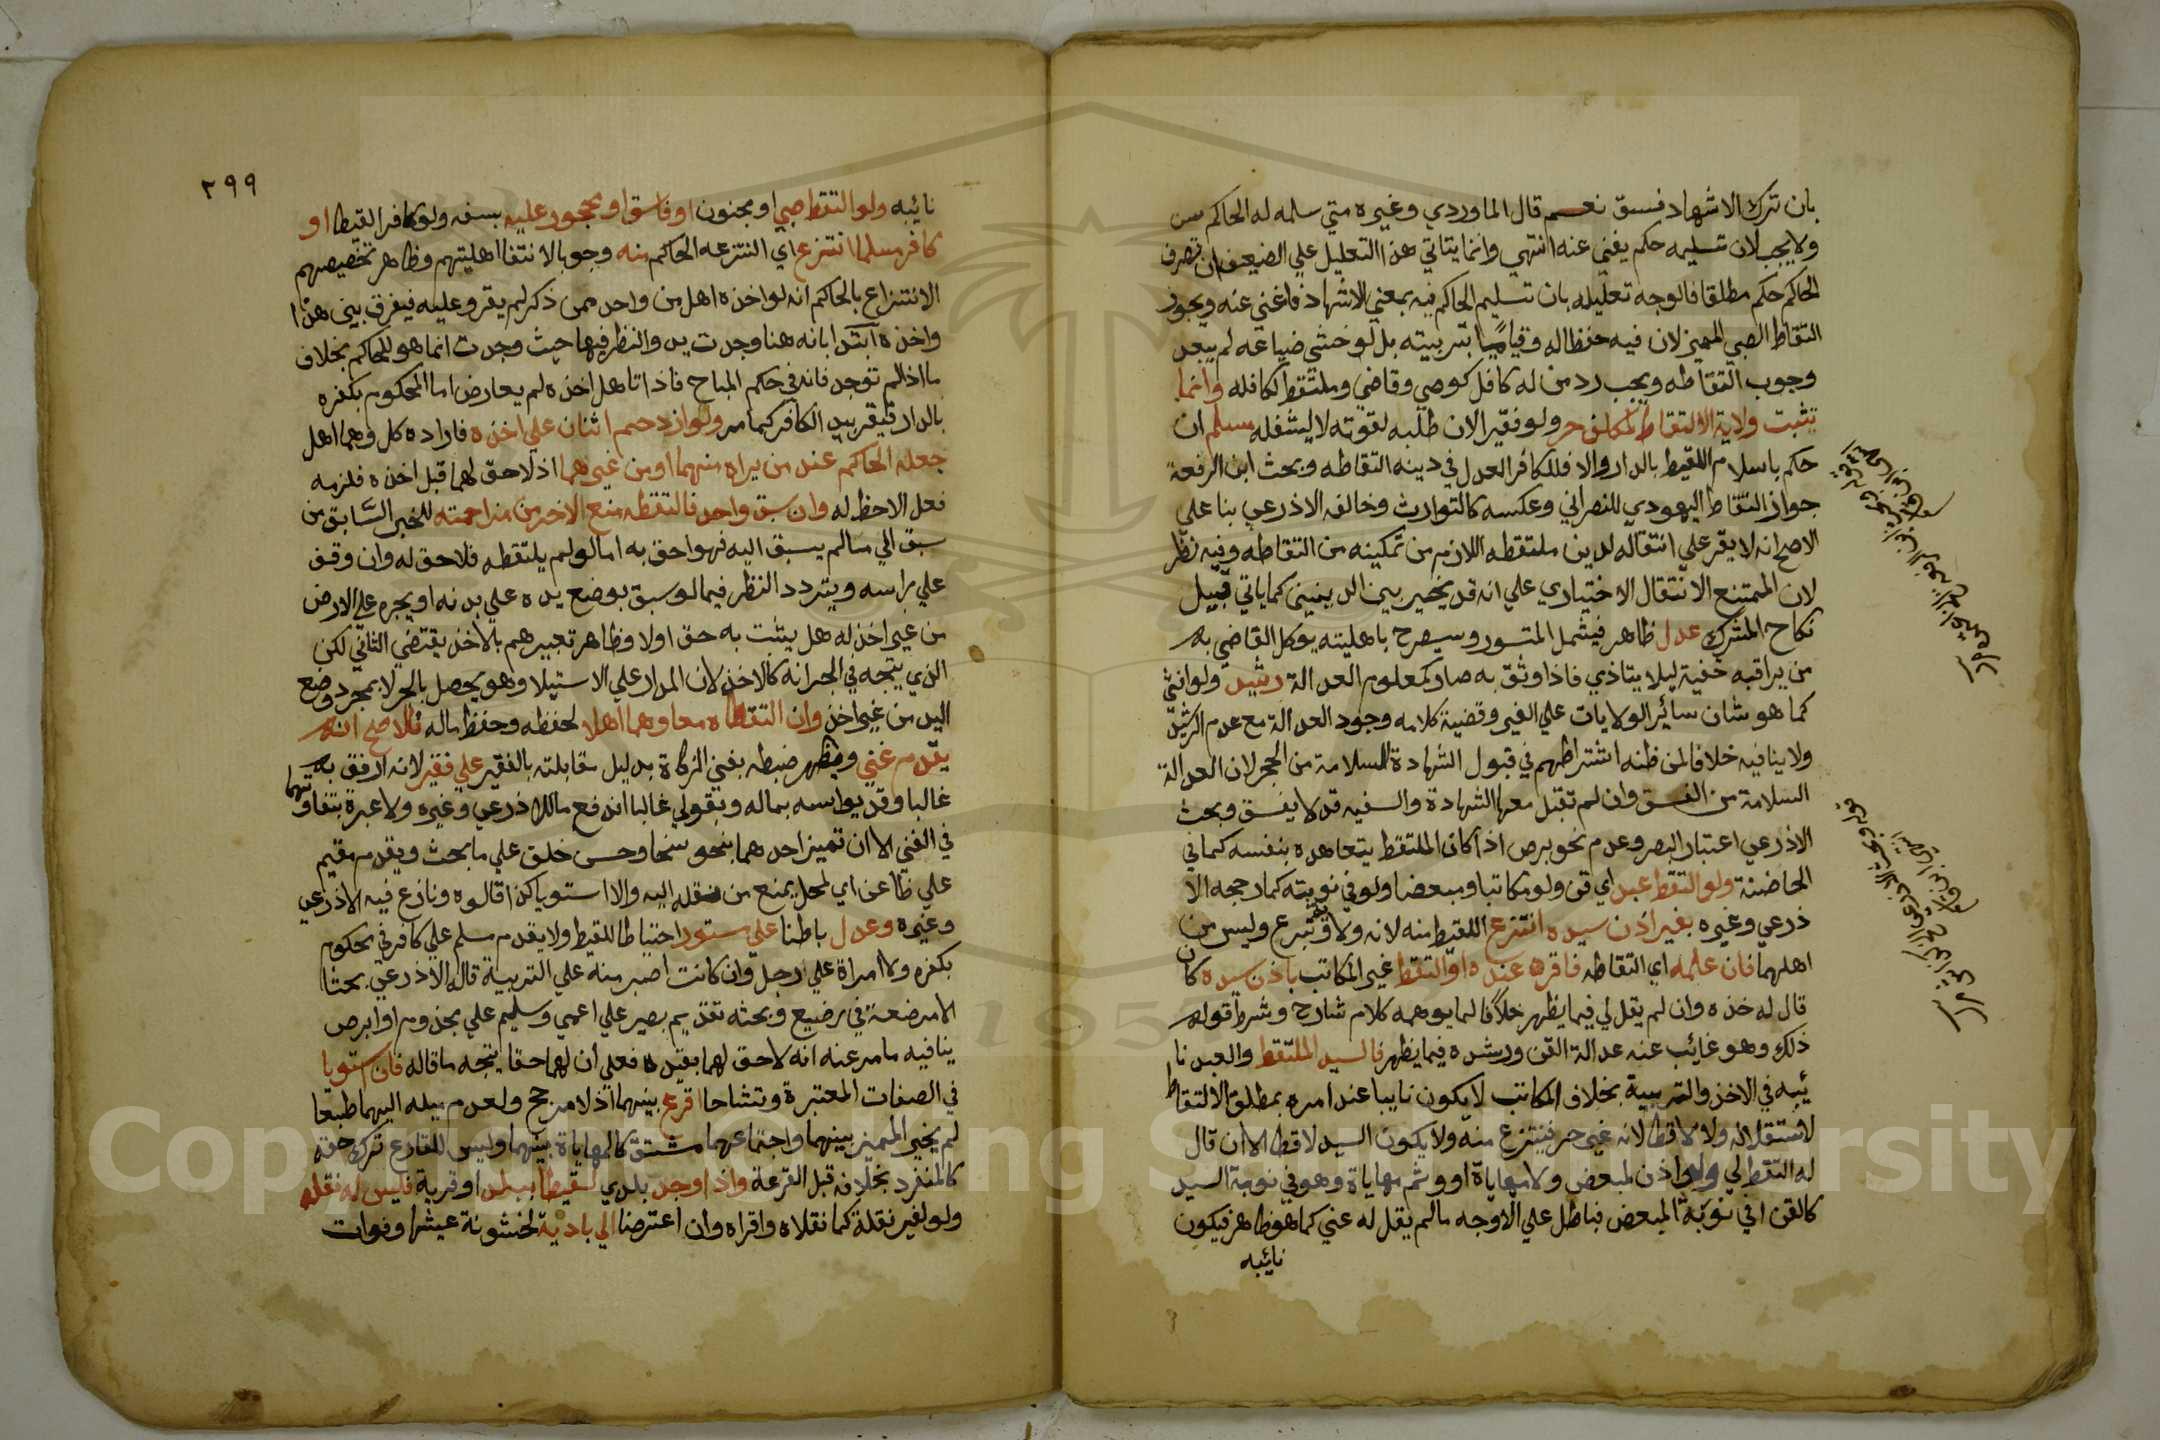 بان ترك الاشهاد فسق نعم قال الماوردي وغيره متي سلمه له الحاكم سن
ولا يجب لان تسليمه حكم يغني عنه انتهي وانما يتاتي هذا التعليل علي الضعيف ان تصرف
الحاكم حكم مطلقا فالوجه تعليله بان تسليم الحاكم فيه بمعني الاشهاد فاغني عنه ويجوز
التقاط الصبي المميز لان فيه حفظا له وقياما بتربيته بل لو خشي ضياعه لم يبعد
وجوب التقاطه ويجب رد من له كافل كوصي وقاضي وملتقط لكافله وانما
تثبت ولاية الالتقاط لمكلف حر ولو فقيرا لان طلبه لقوته لا يشغله مسلم ان
حكم باسلام اللقيط بالدار والا فللكافر العدل في دينه التقاطه وبحث ابن الرفعة
جواز التقاط اليهودي للنصراني وعكسه كالتوارث وخالفه الاذرعي بنا علي
الاصح انه لا يقر علي انتقاله لدين ملتقطه اللازم من تمكينه من التقاطه وفيه نظر
لان الممتنع الانتقال الاختياري علي انه قد يخير بين الدينين كما ياتي قبيل
نكاح المشرك عدل ظاهر فيشمل المستور وسيصرح باهليته يوكل القاضي به
من يراقبه خفية ليلا يتاذي فاذا وثق به صار كمعلوم العدالة رشيد ولو انثي
كما هو شان سائر الولايات علي الغير وقضية كلامه وجود العدالة مع عدم الرشد
ولا ينافيه خلافا لمن ظنه اشتراطهم في قبول الشهادة السلامة من الحجر لان العدالة
السلامة من الفسق وان لم تقبل معها الشهادة والسفيه قد لا يفسق وبحث
الاذرعي اعتبار البصر وعدم نحو برص اذا كان الملتقط يتعاهده بنفسه كما في
الحاضنة ولو التقط عبد اي قن ولو مكاتبا ومبعضا ولو في نوبته كما رجحه الا
ذرعي وغيره بغير اذن سيده انتزع اللقيط منه لانه ولاية وتبرع وليس من
اهلهما فان علمه اي التقاطه فاقره عنده او التقط غير المكاتب باذن سيده كان
قال له خذه وان لم يقل لي فيما يظهر خلافا لما يوهمه كلام شارح وشرط قوله
ذلك وهو غائب عنه عدالة القن ورشده فيما يظهر فالسيد الملتقط والعبد نا
ئبه في الاخذ والتربية بخلاف المكاتب لا يكون نايبا عند امره بمطلق الالتقاط
لاستقلاله ولا لاقطا لانه غير حر فينتزع منه ولا يكون السيد لاقطا الا ان قال
له التقط لي ولو اذن لمبعض ولا مهاياة او وثم مهاياة وهو في نوبة السيد
كالقن او في نوبة المبعض فباطل علي الاوجه ما لم يقل له عني كما هو ظاهر فيكون
نائبه
٢٩٩
نائبه ولو التقط صبي او مجنون او فاسق او محجور عليه بسفه ولو كافرا لقيطا او
كافر مسلما انتزع اي انتزعه الحاكم منه وجوبا لانتفا اهليتهم وظاهر تخصيصهم
الانتزاع بالحاكم انه لو اخذه اهل من واحد ممن ذكر لم يقر وعليه فيفرق بين هذا
واخذه ابتدا بانه هنا وجدت يد والنظر فيها حيث وجدت انما هو للحاكم بخلاف
ما اذا لم توجد فانه في حكم المباح فاذا تاهل اخذه لم يعارض اما المحكوم بكفره
بالدار فيقر بيد الكافر كما مر ولو ازدحم اثنان علي اخذه فاراده كل وهما اهل
جعله الحاكم عند من يراه منهما او من غيرهما اذ لا حق لهما قبل اخذه فلزمه
فعل الاحظ له وان سبق واحد فالتقطه منع الاخر من مزاحمته للخبر السابق من
سبق الي ما لم يسبق اليه فهو احق به اما لو لم يلتقطه فلا حق له وان وقف
علي راسه ويتردد النظر فيما لو سبق بوضع يده علي بدنه او يجره علي الارض
من غير اخذ له هل يثبت به حق اولا وظاهر تعبيرهم بالاخذ يقتضي الثاني لكن
الذي يتجه في الجر انه كالاخذ لان المدار علي الاستيلا وهو يحصل بالجر لا بمجرد وضع
اليد من غير اخذ وان التقطاه معا وهما اهلا لحفظه وحفظ ماله فالاصح انه
يقدم غني ويظهر ضبطه بغني الزكاة بدليل مقابلته بالفقير علي فقير لانه ارفق به
غالبا وقد يواسيه بماله وبقولي غالبا اندفع ما للاذرعي وغيره ولا عبرة بتفاوتهما
في الغني الا ان تميز احدهما بنحو سخا وحسن خلق علي ما بحث ويقدم مقيم
علي ظاعن اي لمحل يمنع من نقله اليه والا استويا كذا قالوه ونازع فيه الاذرعي
وغيره وعدل باطنا علي مستور احتياطا للقيط ولا يقدم مسلم علي كافر في محكوم
بكفره ولا امراة علي رجل وان كانت اصبر منه علي التربية قال الاذرعي بحثا
الا مرضعة في رضيع وبحثه تقديم بصير علي اعمي وسليم علي مجذوم او ابرص
ينافيه ما مر عنه انه لا حق لهما بقيده فعلي ان لهما حقا يتجه ما قاله فان استويا
في الصفات المعتبرة وتشاحا اقرع بينهما اذ لا مرجح ولعدم ميله اليهما طبعا
لم يخير المميز بينهما واجتماعهما مشتق كالمهاياة بينهما وليس للقارع ترك حقه
كالمنفرد بخلافه قبل القرعة واذا وجد بلدي لقيطا ببلد او قرية فليس له نقله
ولو لغير نقلة كما نقلاه واقراه وان اعترضا الي بادية لخشونة عيشها وفوات
Copyright © King Saud University
1957